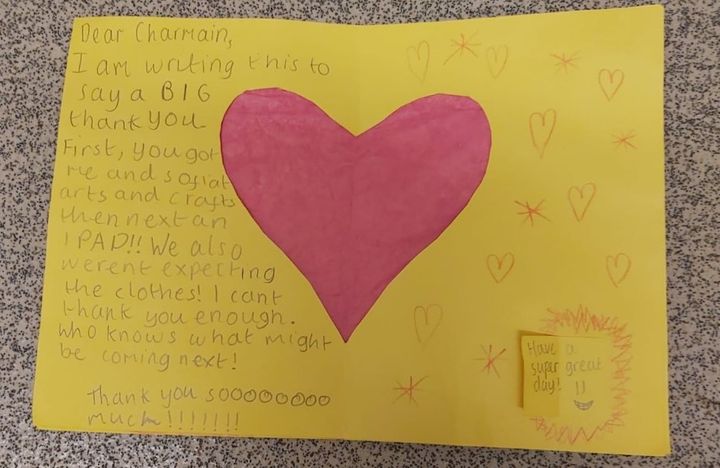 Dear Charmain,
I am writing this to
say a BIG
thank you
First, you got
me and sofiat
arts and crafts
then next an
IPAD!! We also
werent expecting
the clothes! I cant
thank you enough.
Who knows what might
be coming next!
Thank you sooooooooo
much!!!!!!!
Have a
super great
day! !!